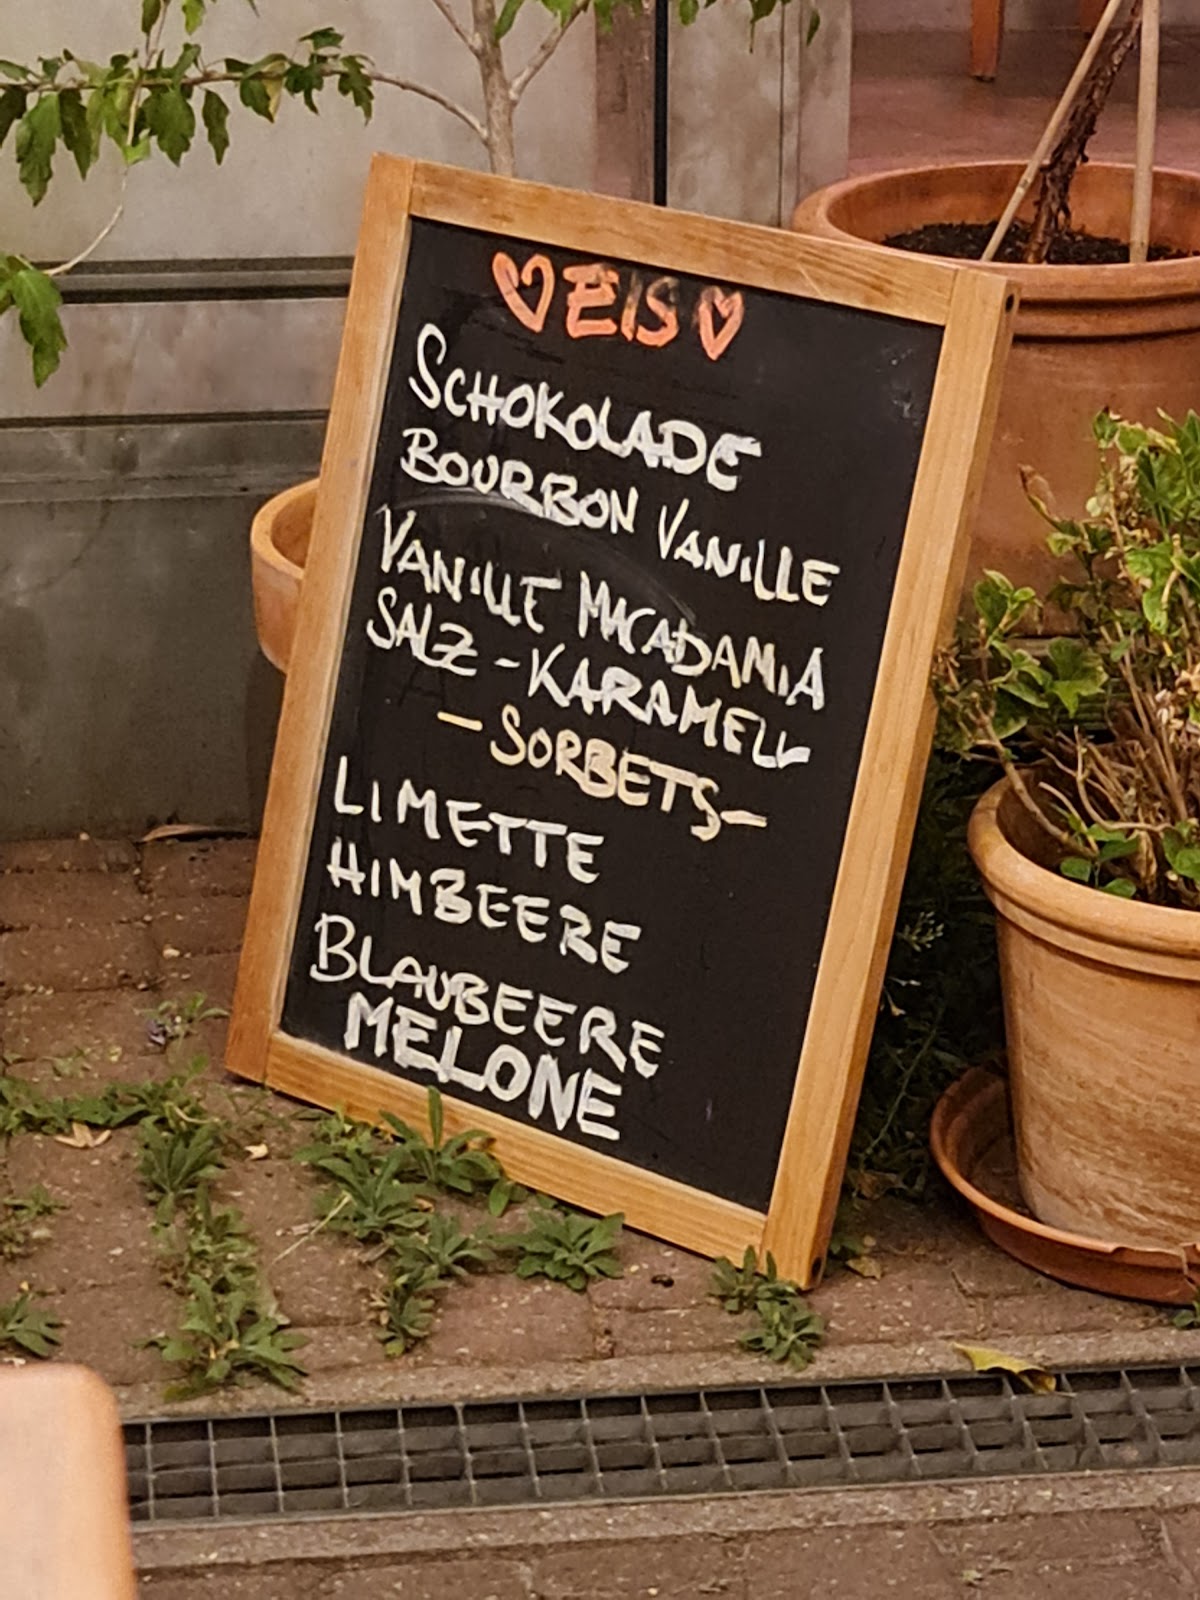 ♡ EIS ♡
SCHOKOLADE
BOURBON VANILLE
VANILLE MACADAMIA
SALZ-KARAMELL
- SORBETS -
LIMETTE
HIMBEERE
BLAUBEERE
MELONE